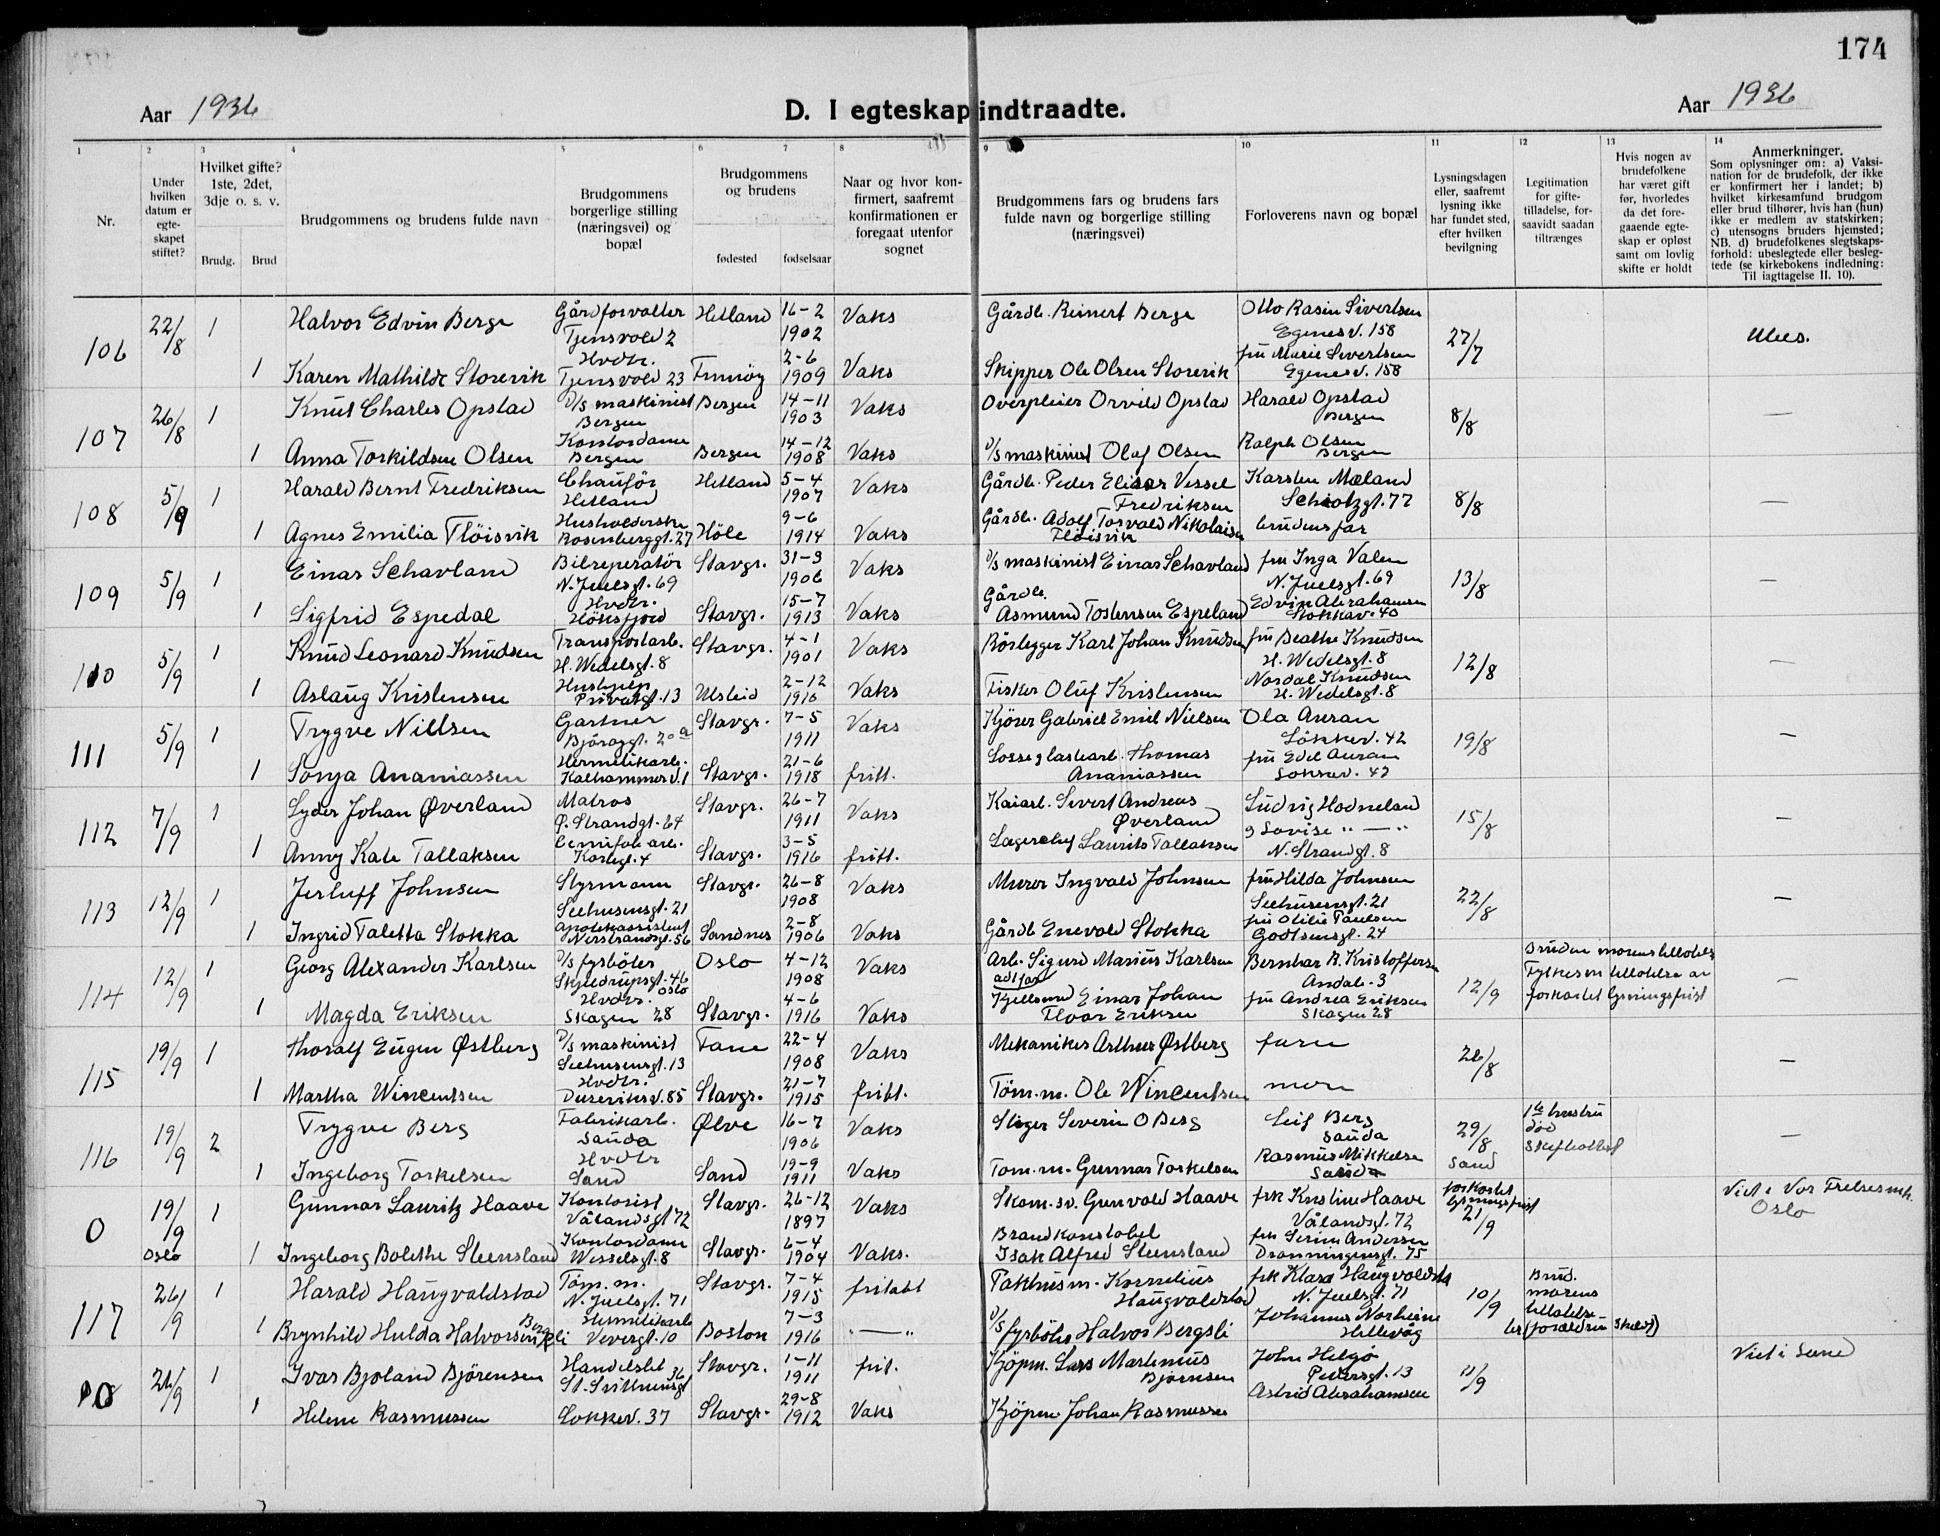 174
Aar 1936
D. I egteskap indtraadte.
Aar 1936
1
Nr.
2
Under hvilken datum er egte-skapet stiftet?
3
Hvilket gifte? 1ste, 2det, 3dje o. s. v.
Brudg.
Brud
4
Brudgommens og brudens fulde navn
5
Brudgommens borgerlige stilling (næringsvei) og bopæl
6
7
Brudgommens og brudens
fødested
fødselsaar
8
Naar og hvor kon-firmert, saafremt konfirmationen er foregaat utenfor sognet
9
Brudgommens fars og brudens fars fulde navn og borgerlige stilling (næringsvei)
10
Forloverens navn og bopæl
11
Lysningsdagen eller, saafremt lysning ikke har fundet sted, efter hvilken bevilgning
12
Legitimation for gifte-tilladelse, for-saavidt saadan tiltrænges
13
Hvis nogen av brudefolkene har været gift før, hvorledes da det fore-gaaende egte-skap er opløst samt om lovlig skifte er holdt
14
Anmerkninger.
Som oplysninger om: a) Vaksi-nation for de brudefolk, der ikke er konfirmert her i landet; b) hvilket kirkesamfund brudgom eller brud tilhører, hvis han (hun) ikke er medlem av statskirken; c) utensogns bruders hjemsted; NB. d) brudefolkenes slegtskaps-forhold: ubeslegtede eller besleg-tede (se kirkebokens indledning: Til iagttagelse II. 10).
106 22/8 1 Halvor Edvin Berge Gårdforvalter Tjensvold 2 Hetland 16-2 1902 Vaks Gårdb. Reinert Berge Otto Rasin Sivertsen Egenesv. 158 27/7 Ubes.
1 Karen Mathilde Storevik Hvdtr. Tjensvold 23 Finnöy 2-6 1909 Vaks Skipper Ole Olsen Storevik fru Marie Sivertsen Egenesv. 158
107 26/8 1 Knut Charles Opstad D/S maskinist Bergen Bergen 14-11 1903 Vaks Overpleier Orvild Opstad Harald Opstad Bergen 8/8 —
1 Anna Torkildsen Olsen Kontordame Bergen Bergen 14-12 1908 Vaks D/S maskinist Olaf Olsen Ralph Olsen Bergen
108 5/9 1 Harald Bernt Fredriksen Chauför Hetland Hetland 5-4 1907 Vaks Gårdb. Peder Elias Vessel Fredriksen Karsten Mæland Schiotzgt. 77 8/8 —
1 Agnes Emilia Flöisvik Husholderske Rosenberggt. 27 Höle 9-6 1914 Vaks Gårdb. Adolf Torvald Nikolaisen Flöisvik brudens far
109 5/9 1 Einar Schavland Bilreparatör N. Juelsgt. 69 Stavgr. 31-3 1906 Vaks D/S maskinist Einar Schavland fru Inga Valen N. Juelsgt. 69 13/8 —
1 Sigfrid Espedal Hvdtr. Högsfjord Stavgr. 15-7 1913 Vaks Gårdb. Asmund Tostensen Espeland Edvin Abrahamsen Stokkav. 40
110 5/9 1 Knud Leonard Knudsen Transportarb. H. Wedelsgt. 8 Stavgr. 4-1 1901 Vaks Rörlegger Karl Johan Knudsen fru Beathe Knudsen H. Wedelsgt. 8 12/8 —
1 Aslaug Kristensen Hushjelp Privatgt. 13 Ulsteid 2-12 1916 Vaks Fisker Oluf Kristensen Nordal Knudsen H. Wedelsgt. 8
111 5/9 1 Trygve Nillsen Gartner Björagt. 20a Stavgr. 7-5 1911 Vaks Kjörer Gabriel Emil Nielsen Ola Auran Lökkev. 42 19/8 —
1 Sonja Ananiassen Hermetikarb. Kalhammerv. 1 Stavgr. 21-6 1918 fritt. Losse & lastearb. Thomas Ananiassen fru Edel Auran Lökkev. 42
112 7/9 1 Syder Johan Øverland Matros Ø. Strandgt. 64 Stavgr. 26-7 1911 Vaks Kaiarb. Sivert Andreas Øverland Ludvig Hodneland 15/8 —
1 Anny Kate Tallaksen Korlegt. 4 Stavgr. 3-5 1916 fritt. Lagerchef Laurits Tallaksen & Lovise " — " N. Strandgt. 8
113 12/9 1 Jerluff Johnsen Styrmann Seehusensgt. 21 Stavgr. 26-8 1908 Vaks Murer Ingvald Johnsen fru Hilda Johnsen Seehusensgt. 21 22/8 —
1 Ingrid Taletta Stokka Apotekassistent Nerstrandsgt. 56 Sandnes 2-8 1906 Vaks Gårdb Enevald Stokka fru Otilie Paulsen Godtfensgt. 24
114 12/9 1 Georg Alexander Karlsen D/S fyrböter Skjeldrupsgt. 46 Oslo Oslo 4-12 1908 Vaks Arb. Sigurd Marius Karlsen adffar Bernhar A. Kristoffersen Andals. 3 12/9 Brudens morens tilladelse Fylkesm tilladelse av forkortet lysningsfrist —
1 Magda Eriksen Hvdtr. Skagen 28 Stavgr. 4-6 1916 Vaks Kjellsmed Einar Johan Floor Eriksen fru Andrea Eriksen Skagen 28
115 19/9 1 Thoralf Eugen Østberg D/S maskinist Seehusensgt. 13 Fane 22-4 1908 Vaks Mekaniker Arthur Østberg faren 26/8 —
1 Martha Wincentsen Hvdtr. Duserviksv. 85 Stavgr. 21-7 1915 fritt. Töm.m. Ole Wincentsen moren
116 19/9 2 Trygve Berg Fabrikarb. Sauda Ølve 16-7 1906 Vaks Stiger Severin O Berg Leif Berg Sauda 29/8 Sand 1ste hustru död Skifteattest —
1 Ingeborg Torkelsen Hvdtr Sand Sand 19-9 1911 Vaks Tom.m. Gunnar Torkelsen Rasmus Mikkelsen Sauda
0 19/9 Oslo 1 Gunnar Lauritz Haave Kontorist Vålandsgt 72 Stavgr. 26-12 1897 Vaks Skom.sv. Gunvald Haave frk Kristine Haave Vålandsgt. 72 forkortet lysningsfrist 21/9 Viet i Vor Frelsers k. Oslo
1 Ingeborg Bolette Steensland Kontordame Wesselsgt. 8 Stavgr. 6-4 1904 Vaks. Brandkonstabel Isak Alfred Steensland fru Serine Andersen Dronningensgt. 75
117 26/9 1 Harald Haugvaldstad Töm.m. N. Juelsgt. 71 Stavgr. 7-4 1915 fritatt Pakhusm. Kornelius Haugvaldstad frk Klara Haugvaldstad N. Juelsgt. 71 10/9 Brud. morens tilladelse (foreldrene skildt)
1 Brynhild Hulda Halvorsen Bergsli Hermetikarb Vevergt. 10 Boston 7-3 1916 " — " D/S fyrböter Halvor Bergsli Johannes Norheim Hillevåg
0 26/9 1 Ivar Bjoland Björensen Handelsbet St. Svithunsgt 36 Stavgr. 1-11 1911 frit. Kjöpm. Lars Martinius Bjørnsen John Helgö Pedersgt. 13 11/9 Viet i Lund
1 Helene Rasmussen Lokkev. 37 Stavgr. 29-8 1912 Vaks Kjöpm Johan Rasmussen Astrid Abrahamsen